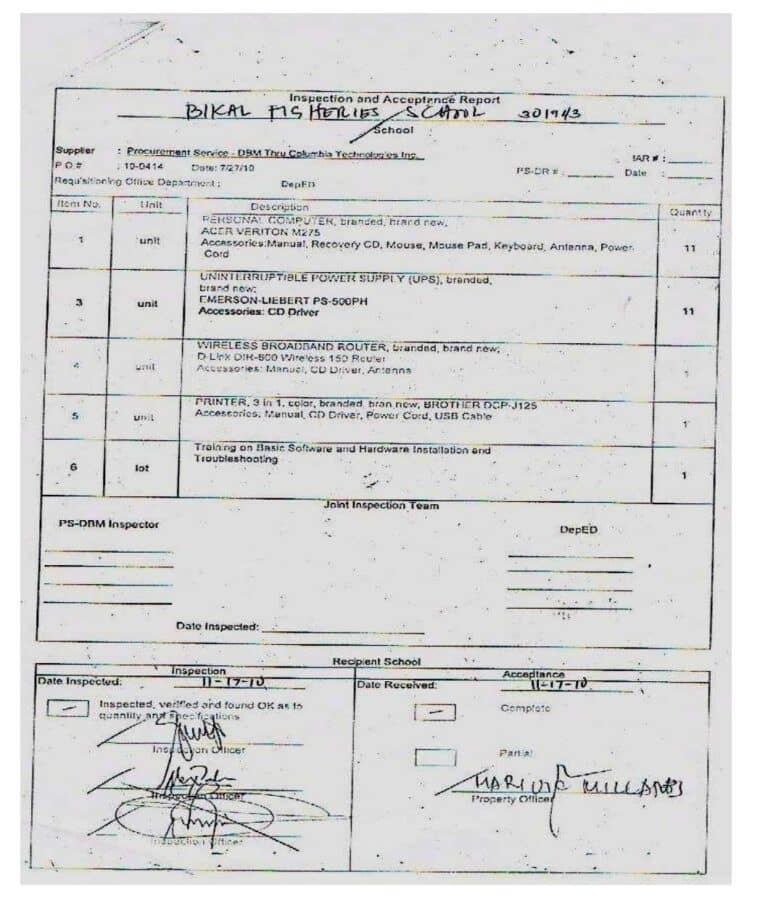 Inspection and Acceptance Report
BIKAL FISHERIES SCHOOL 301943
School
Supplier : Procurement Service - DBM Thru Columbia Technologies Inc.
IAR # :
P.O.# : 10-0414 Date: 7/27/10
PS-DR # : Date :
Requisitioning Office Department : DepED
Item No. Unit Description Quantity
PERSONAL COMPUTER, branded, brand new,
ACER VERITON M275
1 unit Accessories:Manual, Recovery CD, Mouse, Mouse Pad, Keyboard, Antenna, Power 11
Cord
UNINTERRUPTIBLE POWER SUPPLY (UPS), branded,
brand new;
3 unit EMERSON-LIEBERT PS-500PH 11
Accessories: CD Driver
WIRELESS BROADBAND ROUTER, branded, brand new;
D-Link DIR-600 Wireless 150 Router
4 unit Accessories: Manual, CD Driver, Antenna 1
PRINTER, 3 in 1, color, branded, bran new, BROTHER DCP-J125
5 unit Accessories: Manual, CD Driver, Power Cord, USB Cable 1
Training on Basic Software and Hardware Installation and
6 lot Troubleshooting 1
Joint Inspection Team
PS-DBM Inspector DepED
Date Inspected:
Recipient School
Inspection Acceptance
Date Inspected: 11-17-10 Date Received: 11-17-10
Inspected, verified and found OK as to Complete
quantity and specifications
Inspection Officer Partial
Inspection Officer Property Officer
Inspection Officer